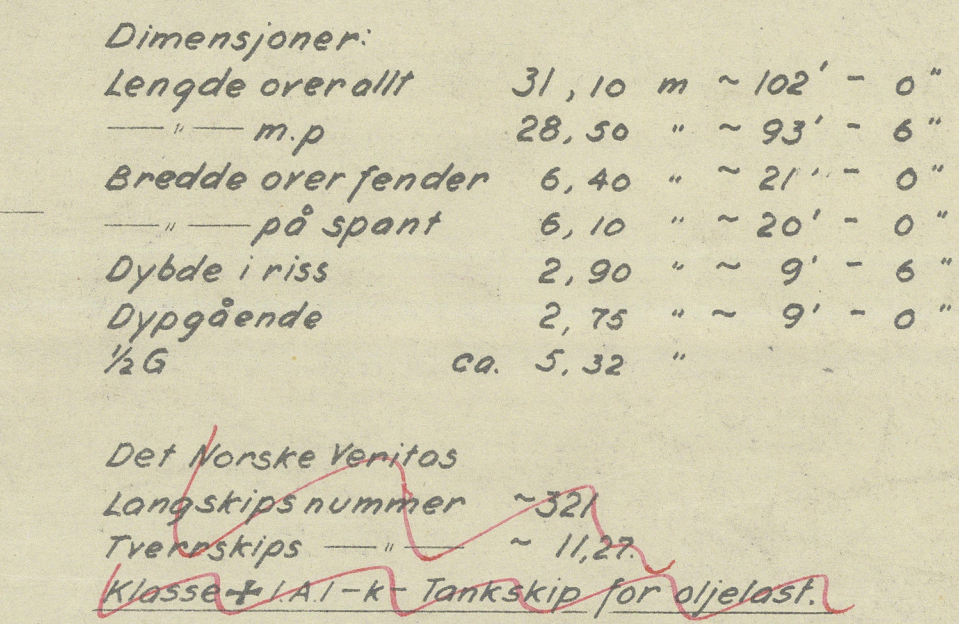 Dimensjoner:
Lengde overallt 31,10 m ~ 102' - 0"
—— " —— m.p 28,50 " ~ 93' - 6"
Bredde over fender 6,40 " ~ 21' - 0"
—— " —— på spant 6,10 " ~ 20' - 0"
Dybde i riss 2,90 " ~ 9' - 6"
Dypgående 2,75 " ~ 9' - 0"
½ G ca. 5,32 "
Det Norske Veritas
Langskipsnummer ~321
Tverrskips —— " —— ~ 11,27.
Klasse ✢ 1.A.1 - k - Tankskip for oljelast.